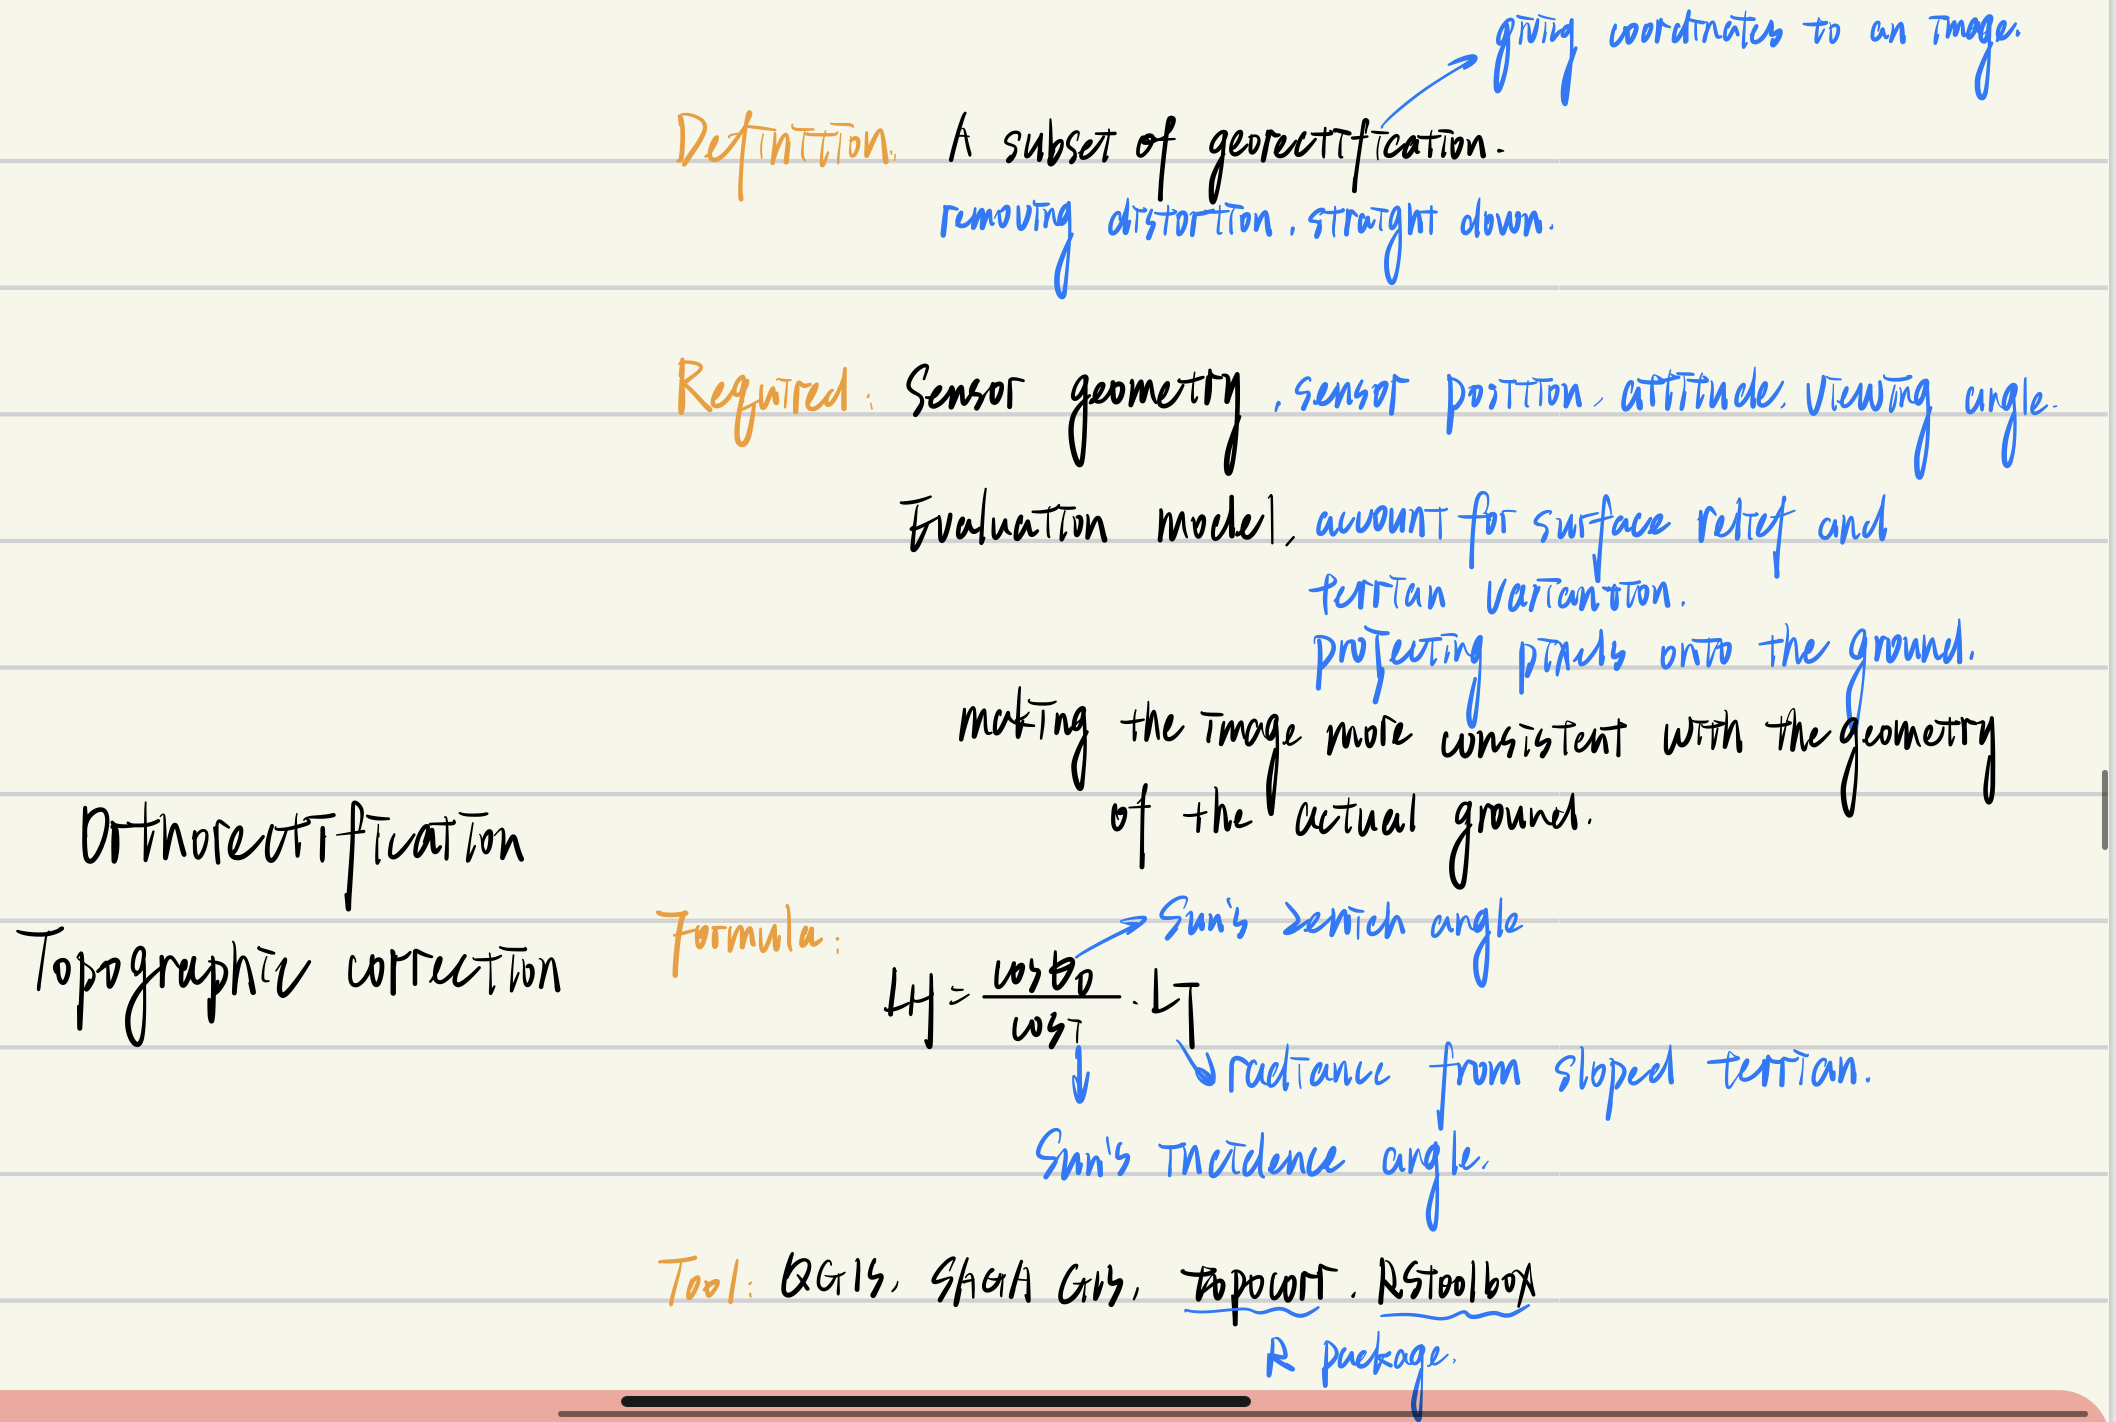 giving coordinates to an image.
Definition. A subset of georectification.
removing distortion, straight down.
Required: Sensor geometry, sensor position, attitude, viewing angle.
Evaluation model, account for surface relief and
terrian variantion.
projecting pixels onto the ground.
making the image more consistent with the geometry
of the actual ground.
Orthorectification
Topographic correction
Formula:
Sun's zenich angle
LH = cosθ0 / cos i · LT
radiance from sloped terrian.
Sun's incidence angle.
Tool: QGIS, SAGA GIS, topocorr, RStoolbox
R package.